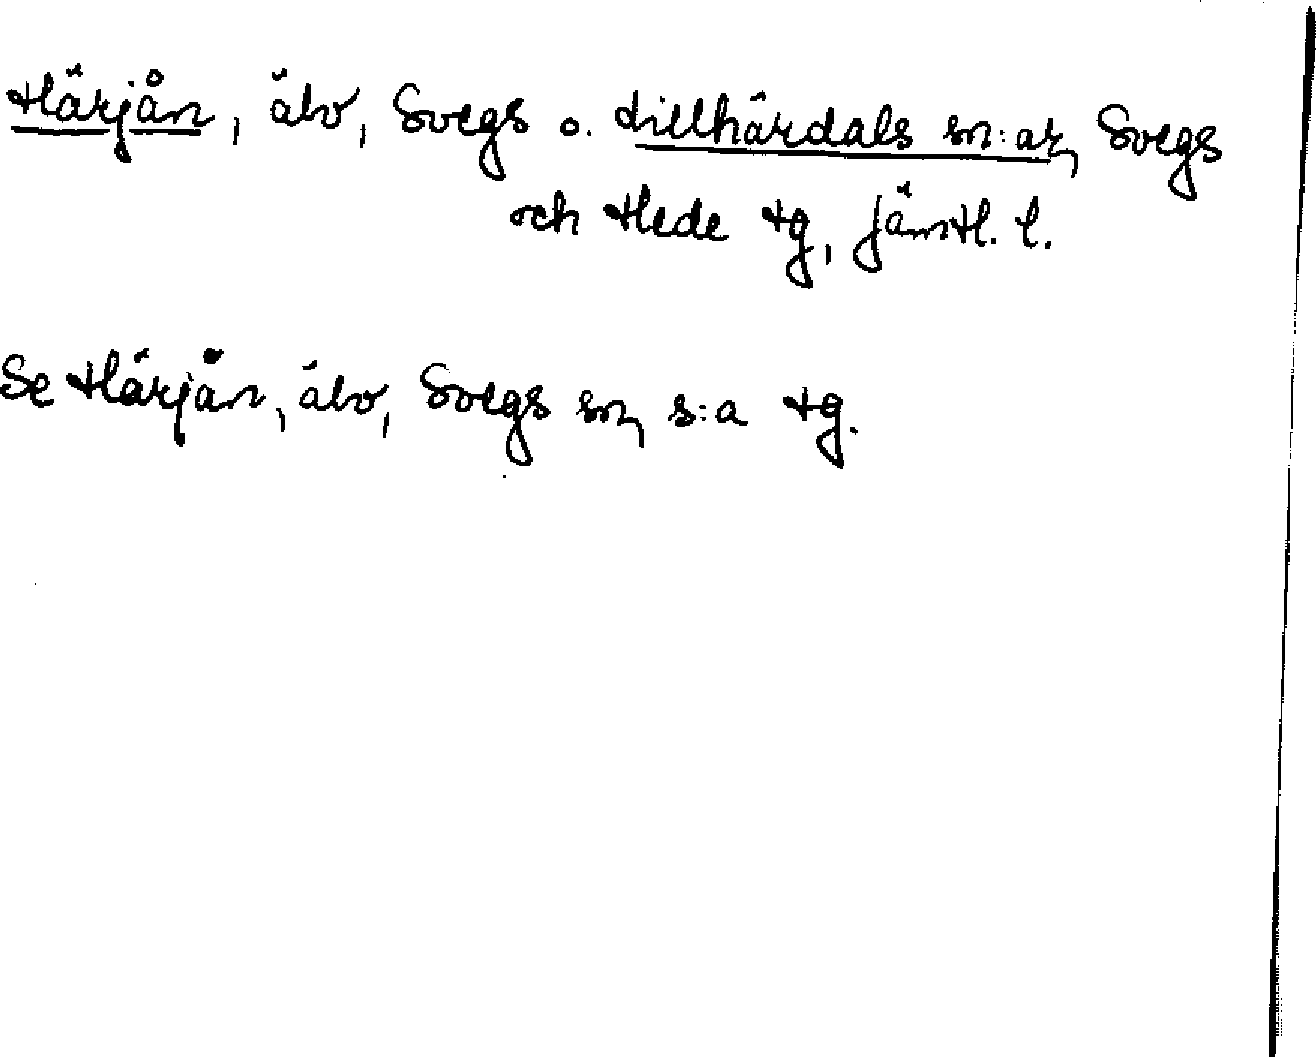 Härjån, älv, Svegs o. Lillhärdals sn:ar, Svegs
och Hede tg, Jämtl. l.
Se Härjån, älv, Svegs sn, s:a tg.